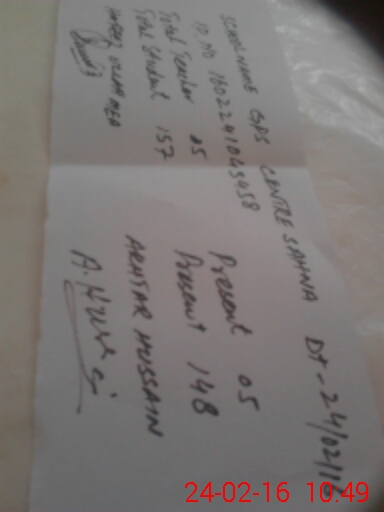 SCHOOL NAME GPS CENTRE SAHNA DT-24/02/16
ID. NO 1802241045958
Total Teacher 05 Present 05
Total Student 157 Present 148
AKHTAR HUSSAIN
A. Hussai
24-02-16 10.49